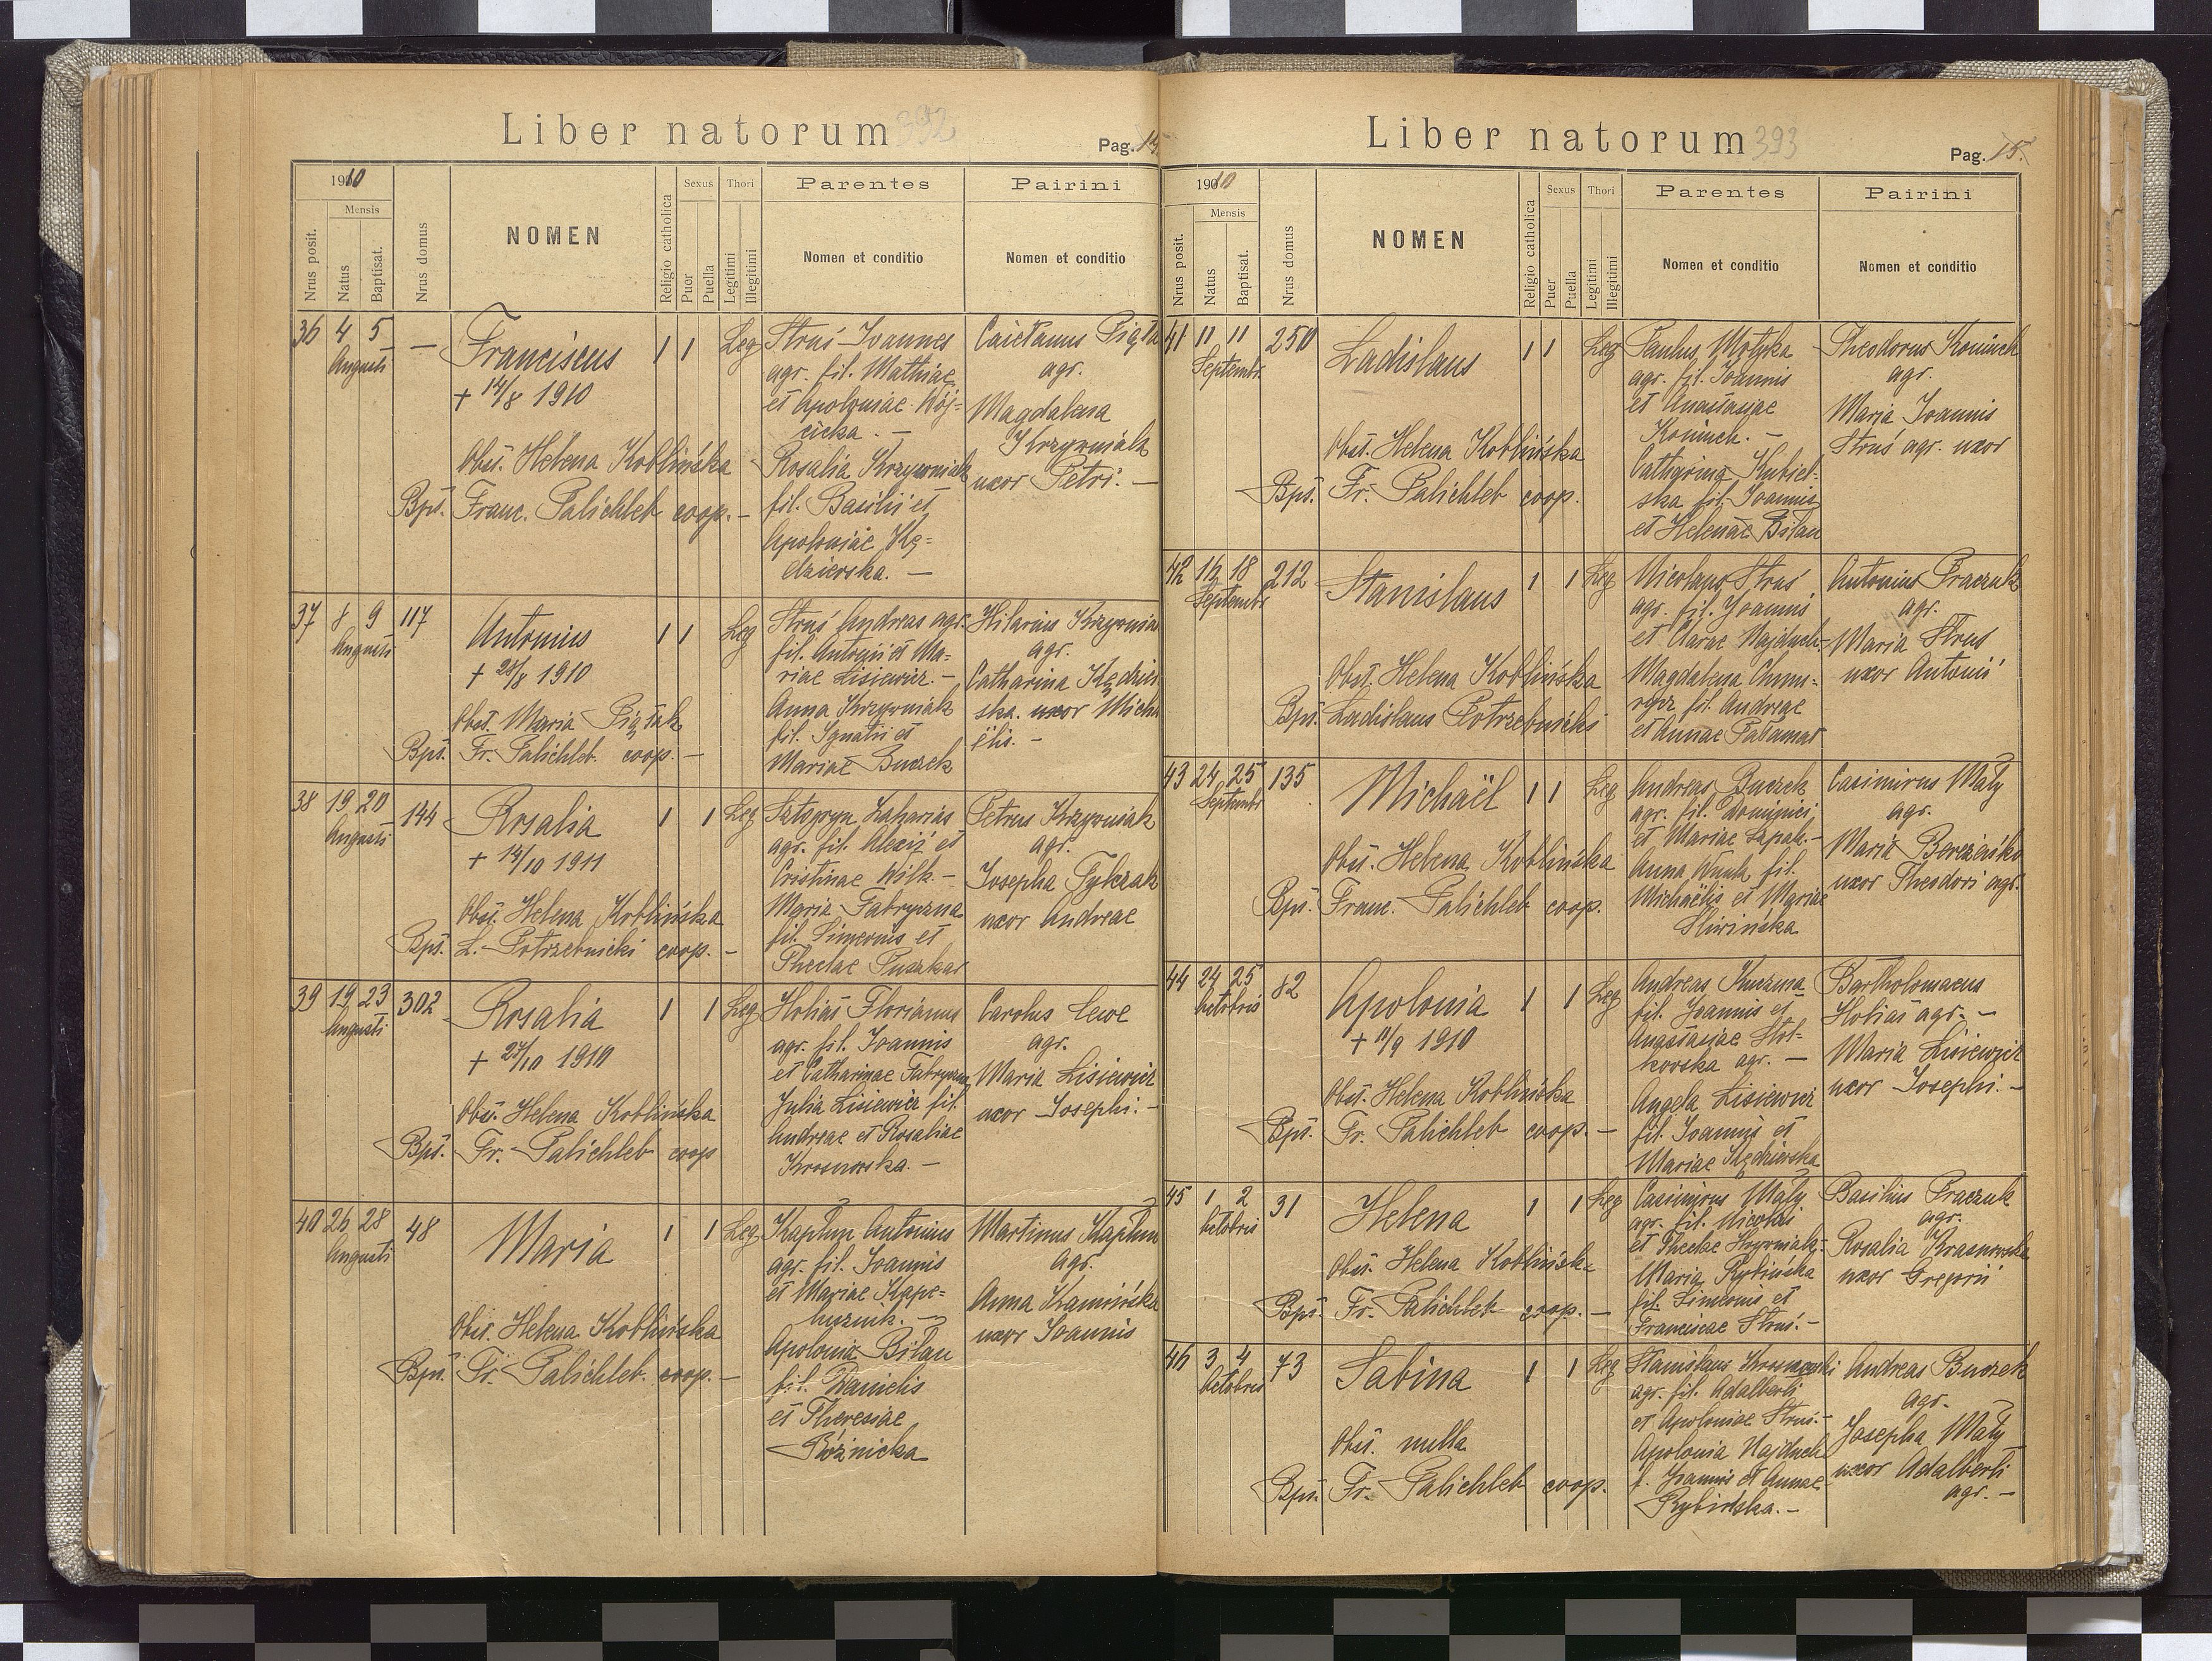 Liber natorum 392
Pag. 14
1910
Mensis
Nrus posit.
Natus
Baptisat.
Nrus domus
NOMEN
Religio catholica
Sexus
Puer
Puella
Thori
Legitimi
Illegitimi
Parentes
Nomen et conditio
Pairini
Nomen et conditio
36 4 5 — Franciscus 1 1 Leg
Augusti
+ 14/8 1910
Obst. Helena Koblińska
Bpt. Franc. Palichleb coop. —
Struś Joannes
agr. fil. Mathiae
et Apoloniae Wój=
cicka. —
Rosalia Krzywniak
fil. Basilii et
Apoloniae Kę=
dzierska. —
Caietanus Piątak
agr.
Magdalena
Krzywniak
uxor Petri. —
37 8 9 117 Antonius 1 1 Leg
Augusti
+ 28/8 1910
Obst. Maria Piątak
Bpt. Fr. Palichleb coop. —
Struś Andreas agr.
fil. Antonii et Ma=
riae Lisiewicz. —
Anna Krzywniak
fil. Ignatii et
Mariae Buczek
Hilarius Krzywniak
agr.
Catharina Kędzier
ska uxor Micha
ëlis. —
38 19 20 144 Rosalia 1 1 Leg
Augusti
+ 14/10 1911
Obst. Helena Koblińska
Bpt. L. Potrzebnicki coop. —
Zaharias
agr. fil. Alexii et
Cristinae Wilk. —
Maria Fabryczna
fil. Simeonis et
Theclae Puszkar
Petrus Krzywniak
agr.
Josepha Tylczak
uxor Andreae
39 19 23 302 Rosalia 1 1 Leg
Augusti
+ 27/10 1910
Obst. Helena Koblińska
Bpt. Fr. Palichleb coop
Holiaś Florianus
agr. fil. Joannis
et Catharinae Fabryczna
Julia Lisiewicz fil.
Andreae et Rosaliae
Krosnowska. —
Carolus Lewe
agr.
Maria Lisiewicz
uxor Josephi. —
40 26 28 48 Maria 1 1 Leg
Augusti
Obst. Helena Koblińska
Bpt. Fr. Palichleb. coop. —
Kapłun Antonius
agr. fil. Joannis
et Mariae Kape=
luzink. —
Apolonia Bilan
fil. Danielis
et Theresiae
Różnicka
Martinus Kapłun
agr.
Anna Kamińska
uxor Joannis
Liber natorum 393
Pag. 15.
1910
Mensis
Nrus posit.
Natus
Baptisat.
Nrus domus
NOMEN
Religio catholica
Sexus
Puer
Puella
Thori
Legitimi
Illegitimi
Parentes
Nomen et conditio
Pairini
Nomen et conditio
41 11 11 250 Ladislaus 1 1 Leg
Septembr.
Obst. Helena Koblińska
Bpt. Fr. Palichleb coop.
Paulus Motyka
agr. fil. Joannis
et Anastasiae
Koniuch. —
Catharina Kubiel=
ska fil. Joannis
et Helenae Bilan
Theodorus Koniuch
agr.
Maria Joannis
Struś agr. uxor
42 16 18 212 Stanislaus 1 1 Leg
Septembr
Obst. Helena Koblińska
Bpt. Ladislaus Potrzebnicki
Nicolaus Struś
agr. fil. Joannis
et Clarae Hajduch. —
Magdalena
fil. Andreae
et Annae Pałamar
Antonius Praczuk
agr.
Maria Struś
uxor Antonii
43 24 25 135 Michaël 1 1 Leg
Septembr
Obst. Helena Koblińska
Bpt. Franc. Palichleb coop.
Andreas Buczek
agr. fil. Dominici
et Mariae Łapak. —
Anna Wnuk fil.
Michaëlis et Mariae
Śliwińska
Casimirus Mały
agr.
Maria Bereżańska
uxor Theodori agr.
44 24 25 82 Apolonia 1 1 Leg
Octobris
+ 11/9 1910
Obst. Helena Koblińska
Bpt. Fr. Palichleb coop. —
Andreas Kuzma
fil. Joannis et
Anastasiae Słot=
kowska agr. —
Angela Lisiewicz
fil. Joannis et
Mariae Kędzierska
Bartholomaeus
Holiaś agr. —
Maria Lisiewicz
uxor Josephi. —
45 1 2 31 Helena 1 1 Leg
Octobris
Obst. Helena Koblińsk-
Bpt. Fr. Palichleb coop. —
Casimirus Mały
agr. fil. Nicolai
et Theclae Krzywniak. —
Maria Rybińska
fil. Simeonis et
Franciscae Struś. —
Basilius Praczuk
agr.
Rosalia Krasnowska
uxor Gregorii
46 3 4 73 Sabina 1 1 Leg
Octobris
Obst. nulla
Bpt. Fr. Palichleb coop.
Stanislaus Krosnowski
agr. fil. Adalberti
et Apoloniae Struś. —
Apolonia Hajduch
f. Joannis et Annae
Rybińska. —
Andreas Buczek
agr.
Josepha Mały
uxor Adalberti
agr. —